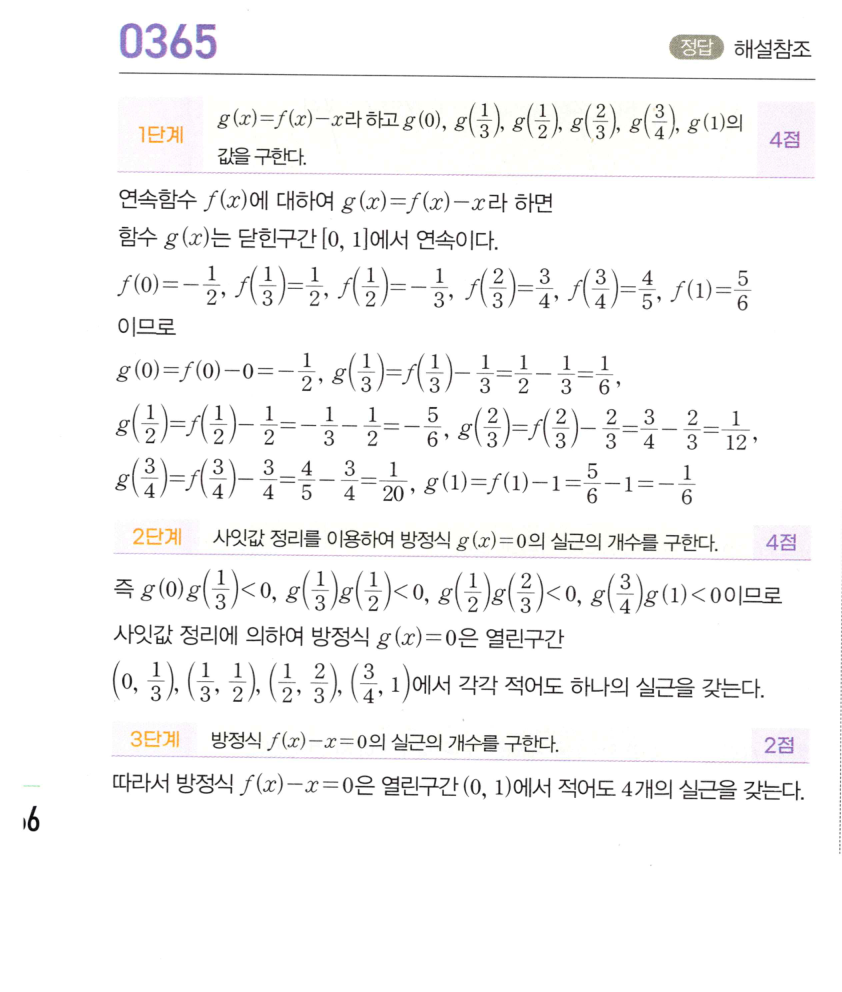 0365 정답 해설참조
1단계 g(x)=f(x)-x라 하고 g(0), g(1/3), g(1/2), g(2/3), g(3/4), g(1)의 4점
값을 구한다.
연속함수 f(x)에 대하여 g(x)=f(x)-x라 하면
함수 g(x)는 닫힌구간 [0, 1]에서 연속이다.
f(0)=-1/2, f(1/3)=1/2, f(1/2)=-1/3, f(2/3)=3/4, f(3/4)=4/5, f(1)=5/6
이므로
g(0)=f(0)-0=-1/2, g(1/3)=f(1/3)-1/3=1/2-1/3=1/6,
g(1/2)=f(1/2)-1/2=-1/3-1/2=-5/6, g(2/3)=f(2/3)-2/3=3/4-2/3=1/12,
g(3/4)=f(3/4)-3/4=4/5-3/4=1/20, g(1)=f(1)-1=5/6-1=-1/6
2단계 사잇값 정리를 이용하여 방정식 g(x)=0의 실근의 개수를 구한다. 4점
즉 g(0)g(1/3)<0, g(1/3)g(1/2)<0, g(1/2)g(2/3)<0, g(3/4)g(1)<0이므로
사잇값 정리에 의하여 방정식 g(x)=0은 열린구간
(0, 1/3), (1/3, 1/2), (1/2, 2/3), (3/4, 1)에서 각각 적어도 하나의 실근을 갖는다.
3단계 방정식 f(x)-x=0의 실근의 개수를 구한다. 2점
따라서 방정식 f(x)-x=0은 열린구간 (0, 1)에서 적어도 4개의 실근을 갖는다.
6